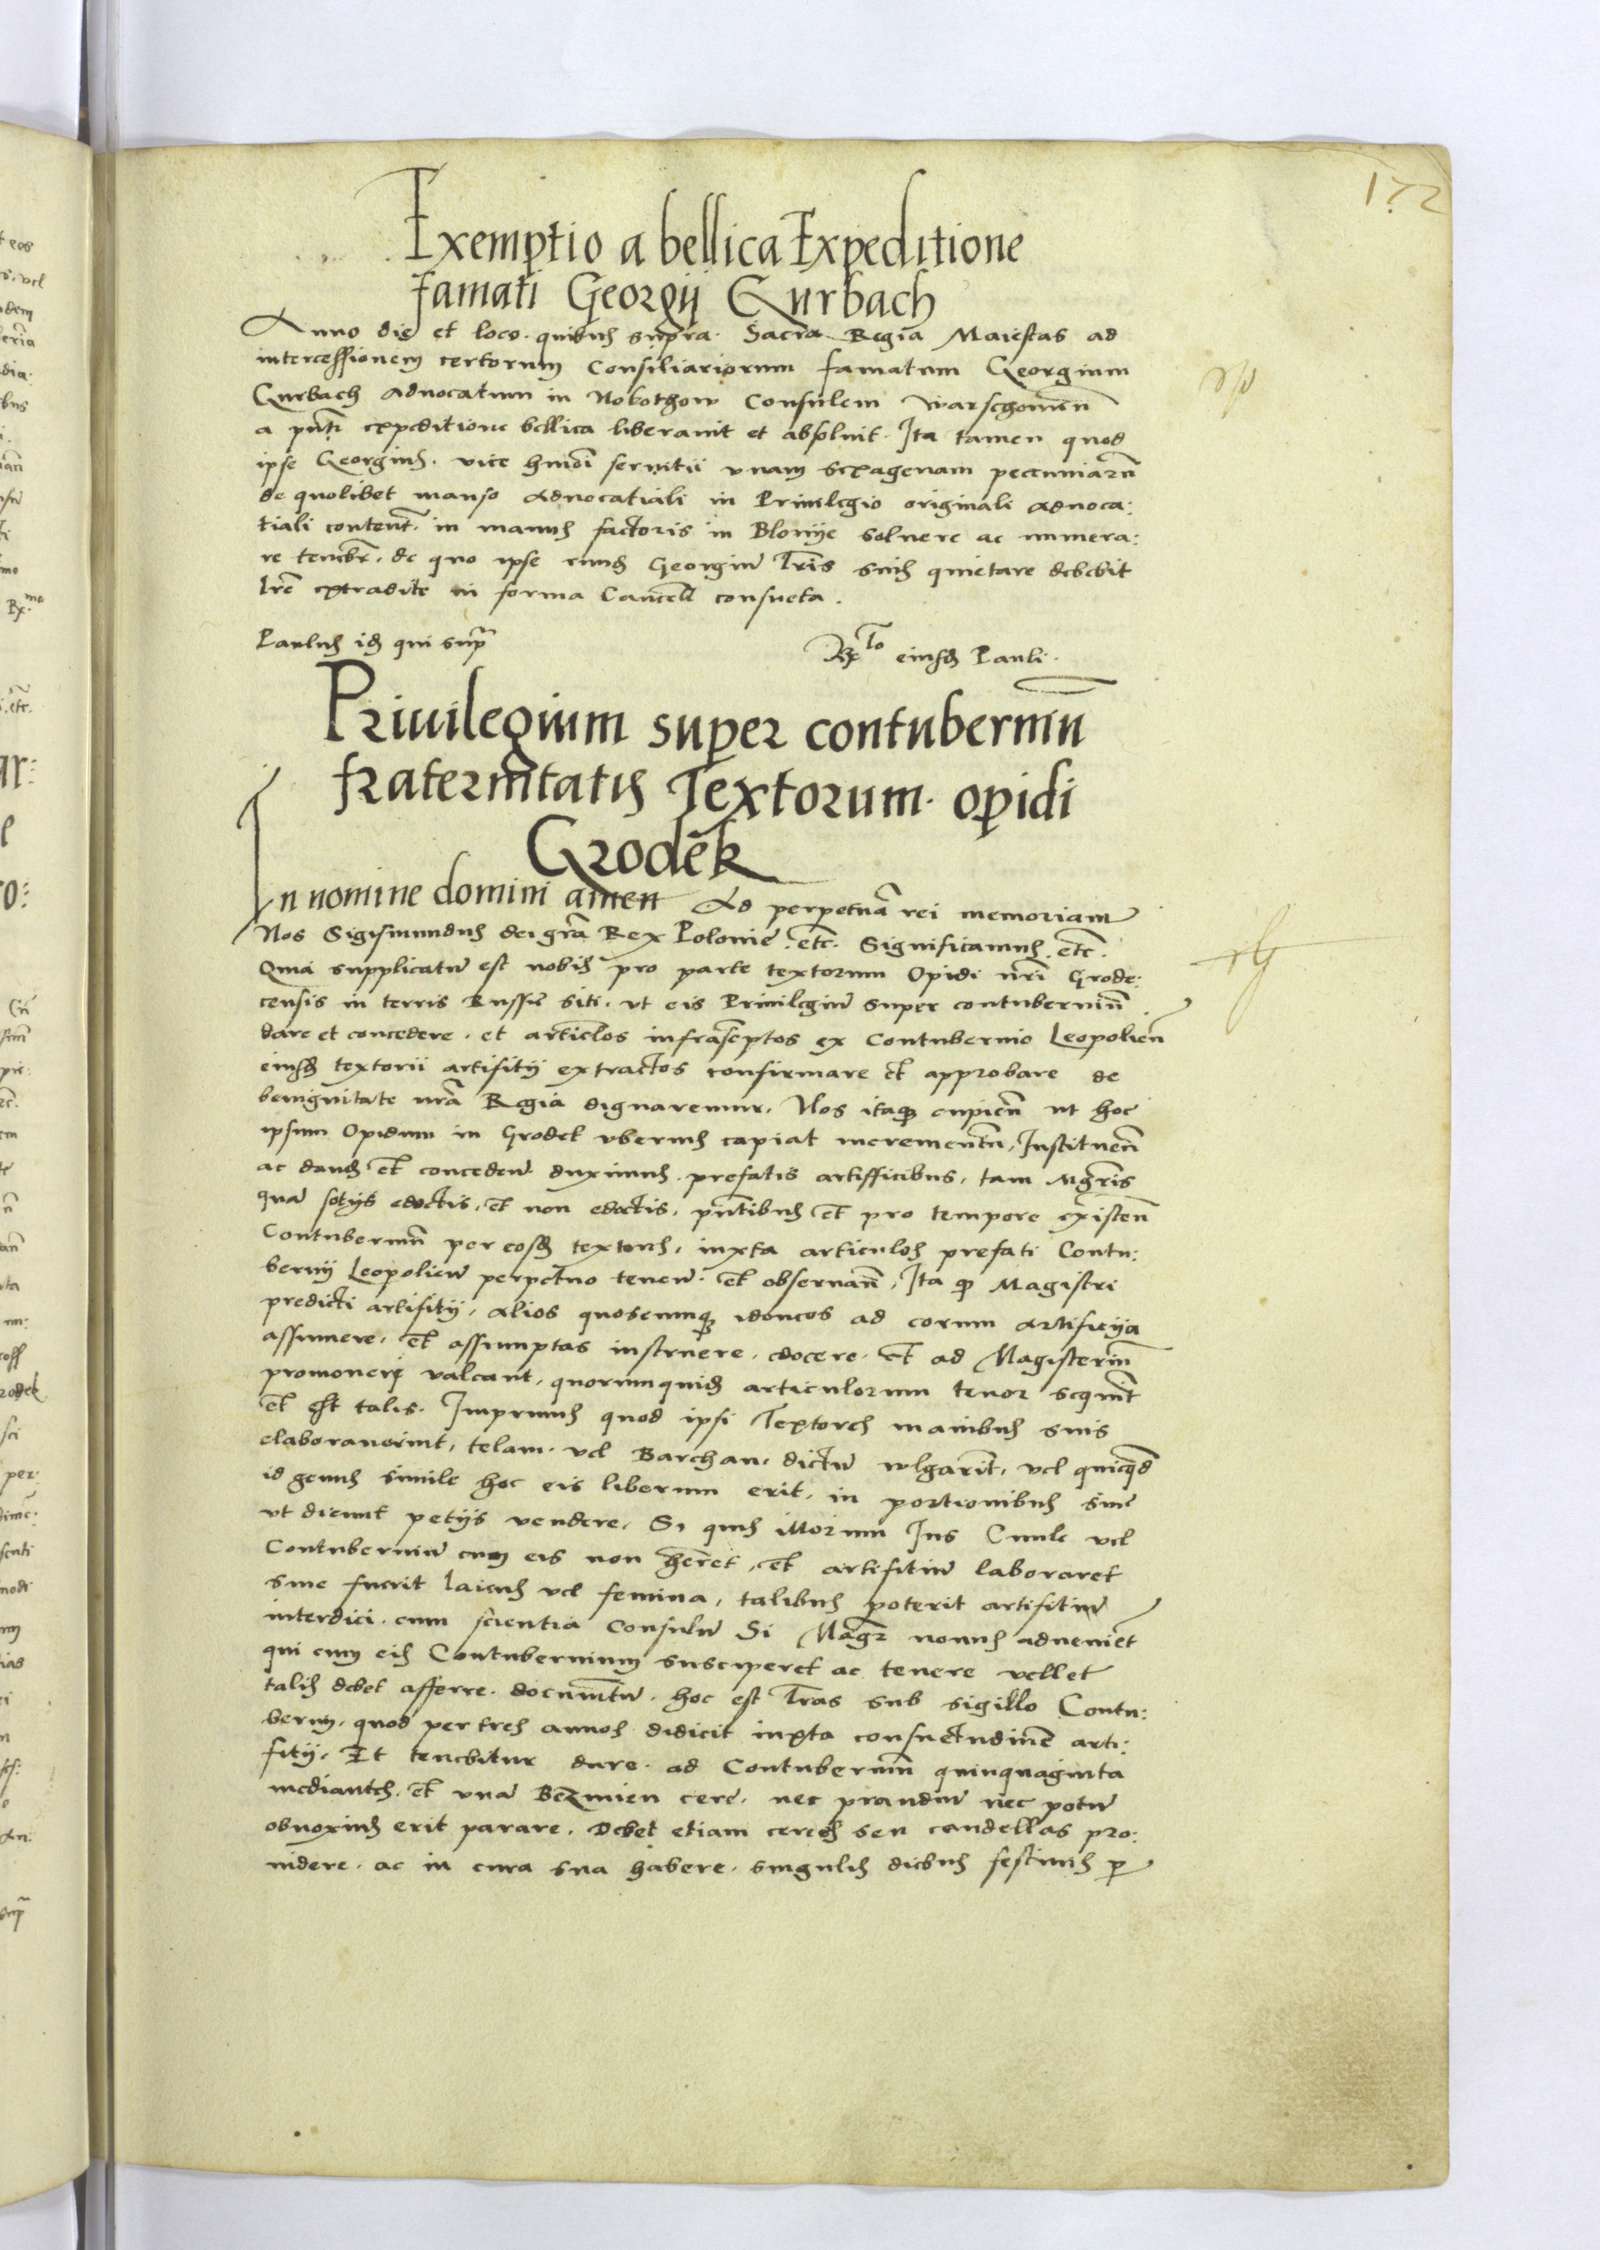 172
Exemptio a bellica Expeditione
famati Georgij Gurbach
Anno die et loco. quibus supra. Sacra Regia Maiestas ad
intercessionem certorum Consiliariorum famatum Georgium
Gurbach Aduocatum in Rokothow Consulem Warschouien̄
a pn̄ti expeditione bellica liberauit et absoluit. Ita tamen quod
ipse Georgius. vice hmōi seruitii vnam sexagenam peccuniarū
de quolibet manso Aduocatiali in Priuilegio originali Aduoca:
tiali content̄. in manus factoris in Blonije soluere ac numera:
re tenebr̄. de quo ipse eund̄ Georgiū lr̄is suis quietare debebit
lr̄e extradite in forma Cancell̄ consueta.
Paulus id̄ qui supr̄
Rx̄ to eiusd̄ Pauli.
Priuilegium super contuberniū
fraternitatis Textorum. opidi
Grodek
In nomine domini amen Ad perpetuā rei memoriam
Nos Sigismundus dei gr̄a Rex Polonie. etc̄. Significamus. etc̄.
Quia supplicatū est nobis pro parte textorum Opidi nr̄i Grode:
censis in terris Russie siti. vt eis Priuilegiū super contuberniū
dare et concedere. et articl̄os infrasc̄ptos ex Contubernio Leopolien̄
eiusd̄ textorii artifitij extractos confirmare et approbare de
benignitate nr̄a Regia dignaremur. Nos itaq̄ cupien̄ vt hoc
ipsum Opidum in Grodek vberius capiat incrementū, Instituen̄
ac dand̄ et concedeñ duximus. prefatis artifficibus, tam Mgr̄is
quā sotijs edoctis, et non edoctis, pn̄tibus et pro tempore existen̄
Contuberniū per eosd̄ textores, iuxta articulos prefati Contu:
bernij Leopolien̄ perpetuo teneñ. et obseruan̄, Ita q̄ Magistri
predicti artifitij, alios quoscumq̄ idoneos ad eorum artificija
assumere. et assumptas instruere. edocere. et ad Magisteriū
promoueri valeant, quorumquid̄ articulorum tenor sequit̄
et est talis. Imprimis quod ipsi Textores manibus suis
elaborauerint, telam. vel Barchan, dictū wlgarit̄, vel quicq̄d
id genus simile hoc eis liberum erit, in portionibus siue
vt dicunt petijs vendere. Si quis illorum Ius Ciuile vel
Contuberniū cum eis non her̄et, et artifitiū laboraret
siue fuerit laicus vel femina, talibus poterit artifitiū
interdici. cum scientia Consulū Si Magr̄ nouus adueniet̄
qui cum eis Contubernium susciperet ac tenere vellet
talis debet afferre. documtū. hoc est lr̄as sub sigillo Contu:
bernij. quod per tres annos didicit iuxta consuetudinē arti:
fitij. Et tenebitur dare. ad Contuberniū quinquaginta
mediantes. et vnā Bezmien cere. nec prandiū nec potū
obnoxius erit parare. Debet etiam cereos seu candellas pro:
uidere. ac in cura sua habere. singulis diebus festiuis p̄